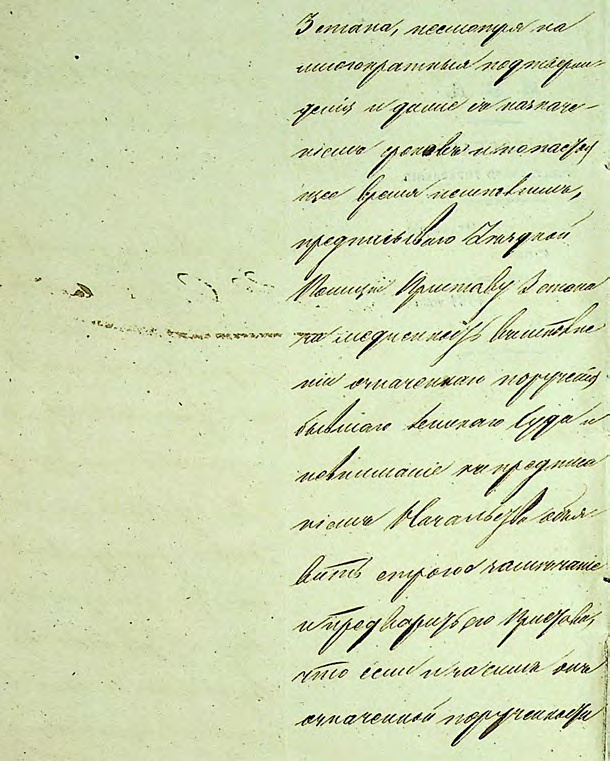 3 стана, несмотря на
многократныя подтверж-
денія и даже съ назначе-
ніемъ сроковъ и по настоя
щее время неисполнилъ,
предписываю Уѣздной
Полиціи Приставу 3 стана
за медленность въ исполне
ніи означеннаго порученія
бывшаго Земскаго Суда и
невниманіе къ предписа
ніемъ Начальства объя-
вить строгое замѣчаніе
и предварить его Пристава,
что если и за симъ онъ
означенной порученности